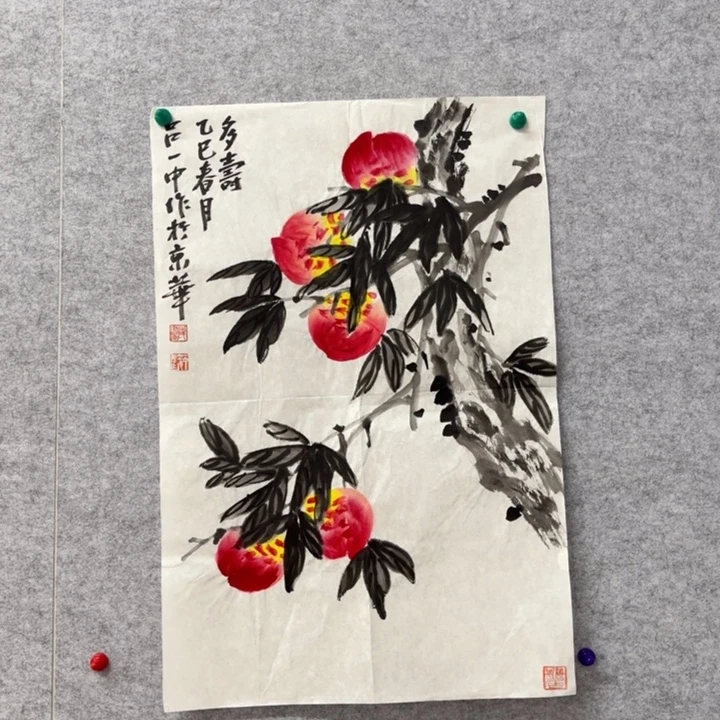 多壽
乙巳春月
呂一中作於京華